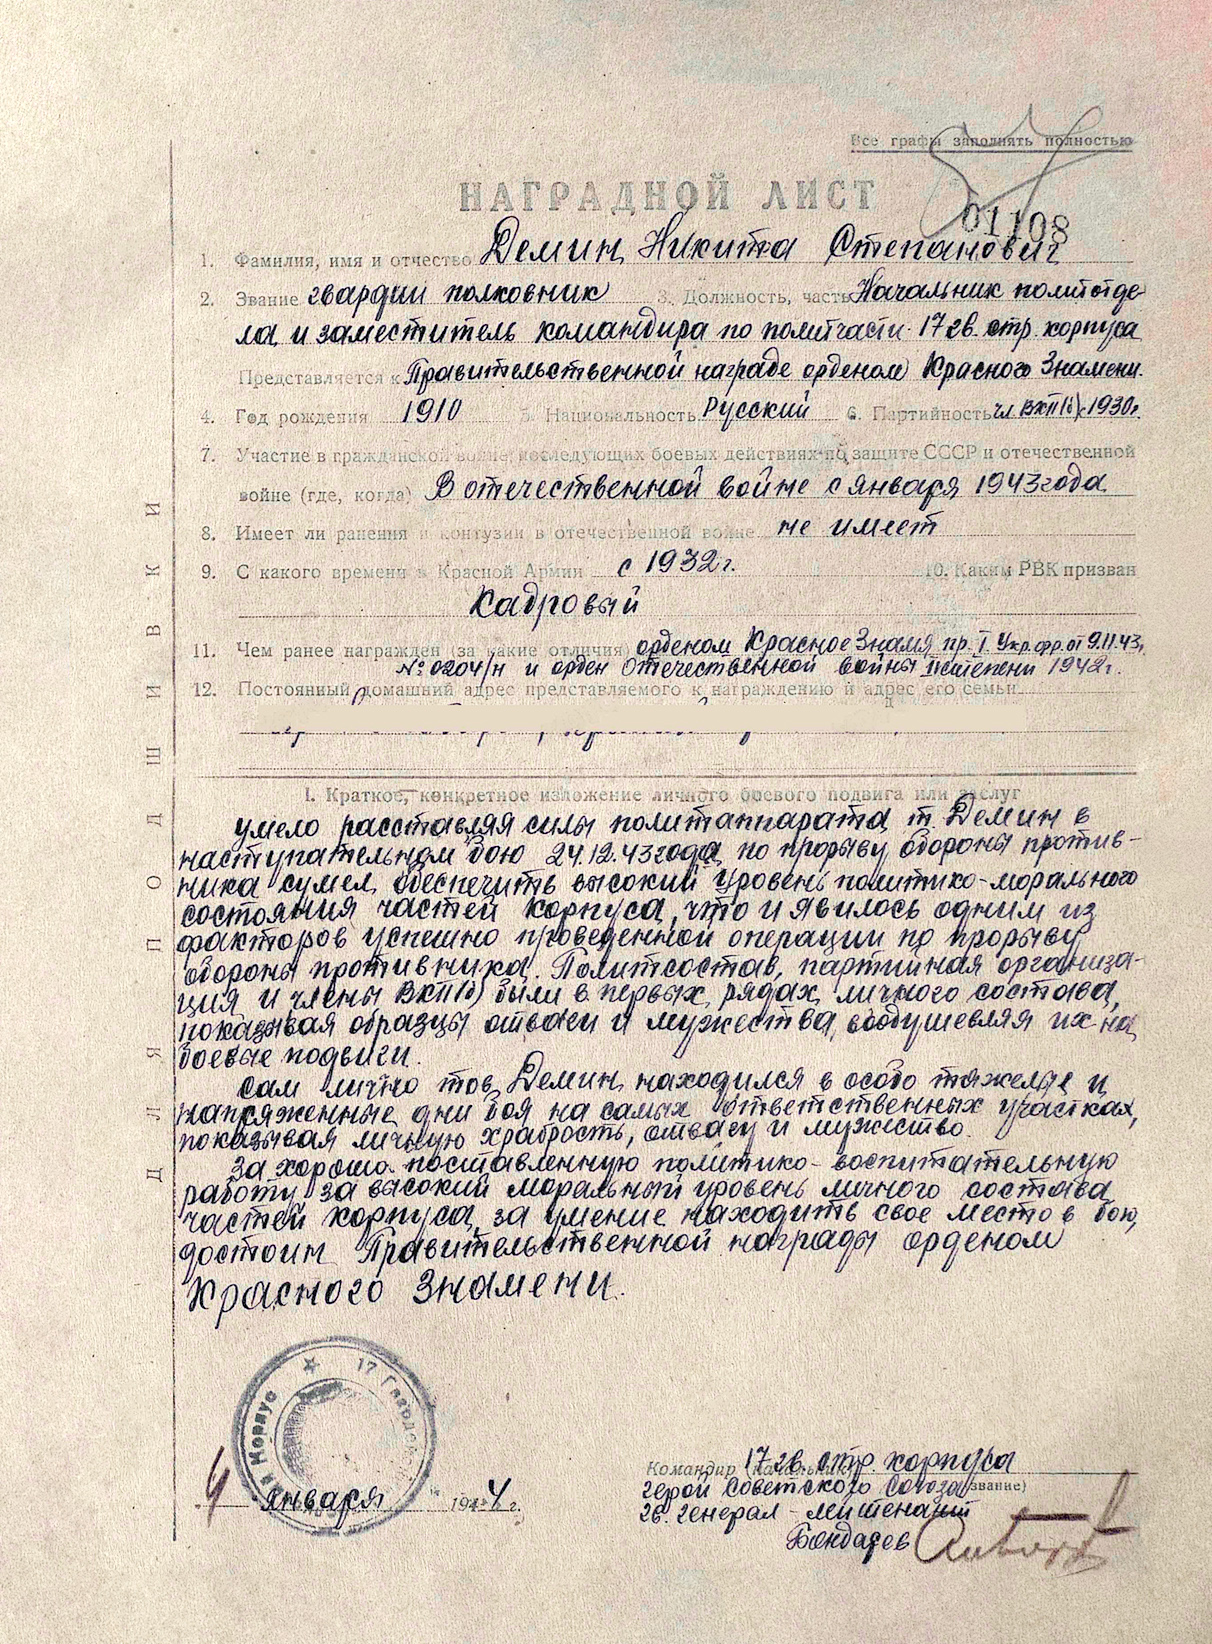 Все графы заполнять полностью
НАГРАДНОЙ ЛИСТ
01108
1. Фамилия, имя и отчество Демин Никита Степанович
2. Звание гвардии полковник 3. Должность, часть Начальник политотде-
ла и заместитель командира по политчасти 17 гв. стр. корпуса
Представляется к Правительственной награде орденом Красного Знамени.
4. Год рождения 1910 5. Национальность Русский 6. Партийность чл ВКП(б) с 1930г.
7. Участие в гражданской войне, последующих боевых действиях по защите СССР и отечественной
войне (где, когда) В отечественной войне с января 1943 года
8. Имеет ли ранения и контузии в отечественной войне не имеет
9. С какого времени в Красной Армии с 1932 г. 10. Каким РВК призван
Кадровый
11. Чем ранее награжден (за какие отличия) орденом Красное Знамя пр. I Укр. фр. от 9.11.43г.
№ 0204/н и орден Отечественной войны II степени 1942 г.
12. Постоянный домашний адрес представляемого к награждению и адрес его семьи
ДЛЯ ПОДШИВКИ
I. Краткое, конкретное изложение личного боевого подвига или заслуг
умело расставляя силы политаппарата т. Демин в
наступательном бою 24.12.43 года по прорыву обороны против-
ника сумел обеспечить высокий уровень политико-морального
состояния частей корпуса, что и явилось одним из
факторов успешно проведенной операции по прорыву
обороны противника. Политсостав, партийная организа-
ция и члены ВКП(б) были в первых рядах личного состава,
показывая образцы отваги и мужества, воодушевляя их на
боевые подвиги.
Сам лично тов. Демин находился в особо тяжелые и
напряженные дни боя на самых ответственных участках,
показывая личную храбрость, отвагу и мужество.
За хорошо поставленную политико-воспитательную
работу, за высокий моральный уровень личного состава
частей корпуса, за умение находить свое место в бою,
достоин Правительственной награды орденом
Красного Знамени.
17 Гвардейск
й Корпус
Командир (начальник) 17 гв. стр. корпуса
Герой Советского Союза (звание)
гв. генерал-лейтенант
Бондарев
4 января 1944 г.